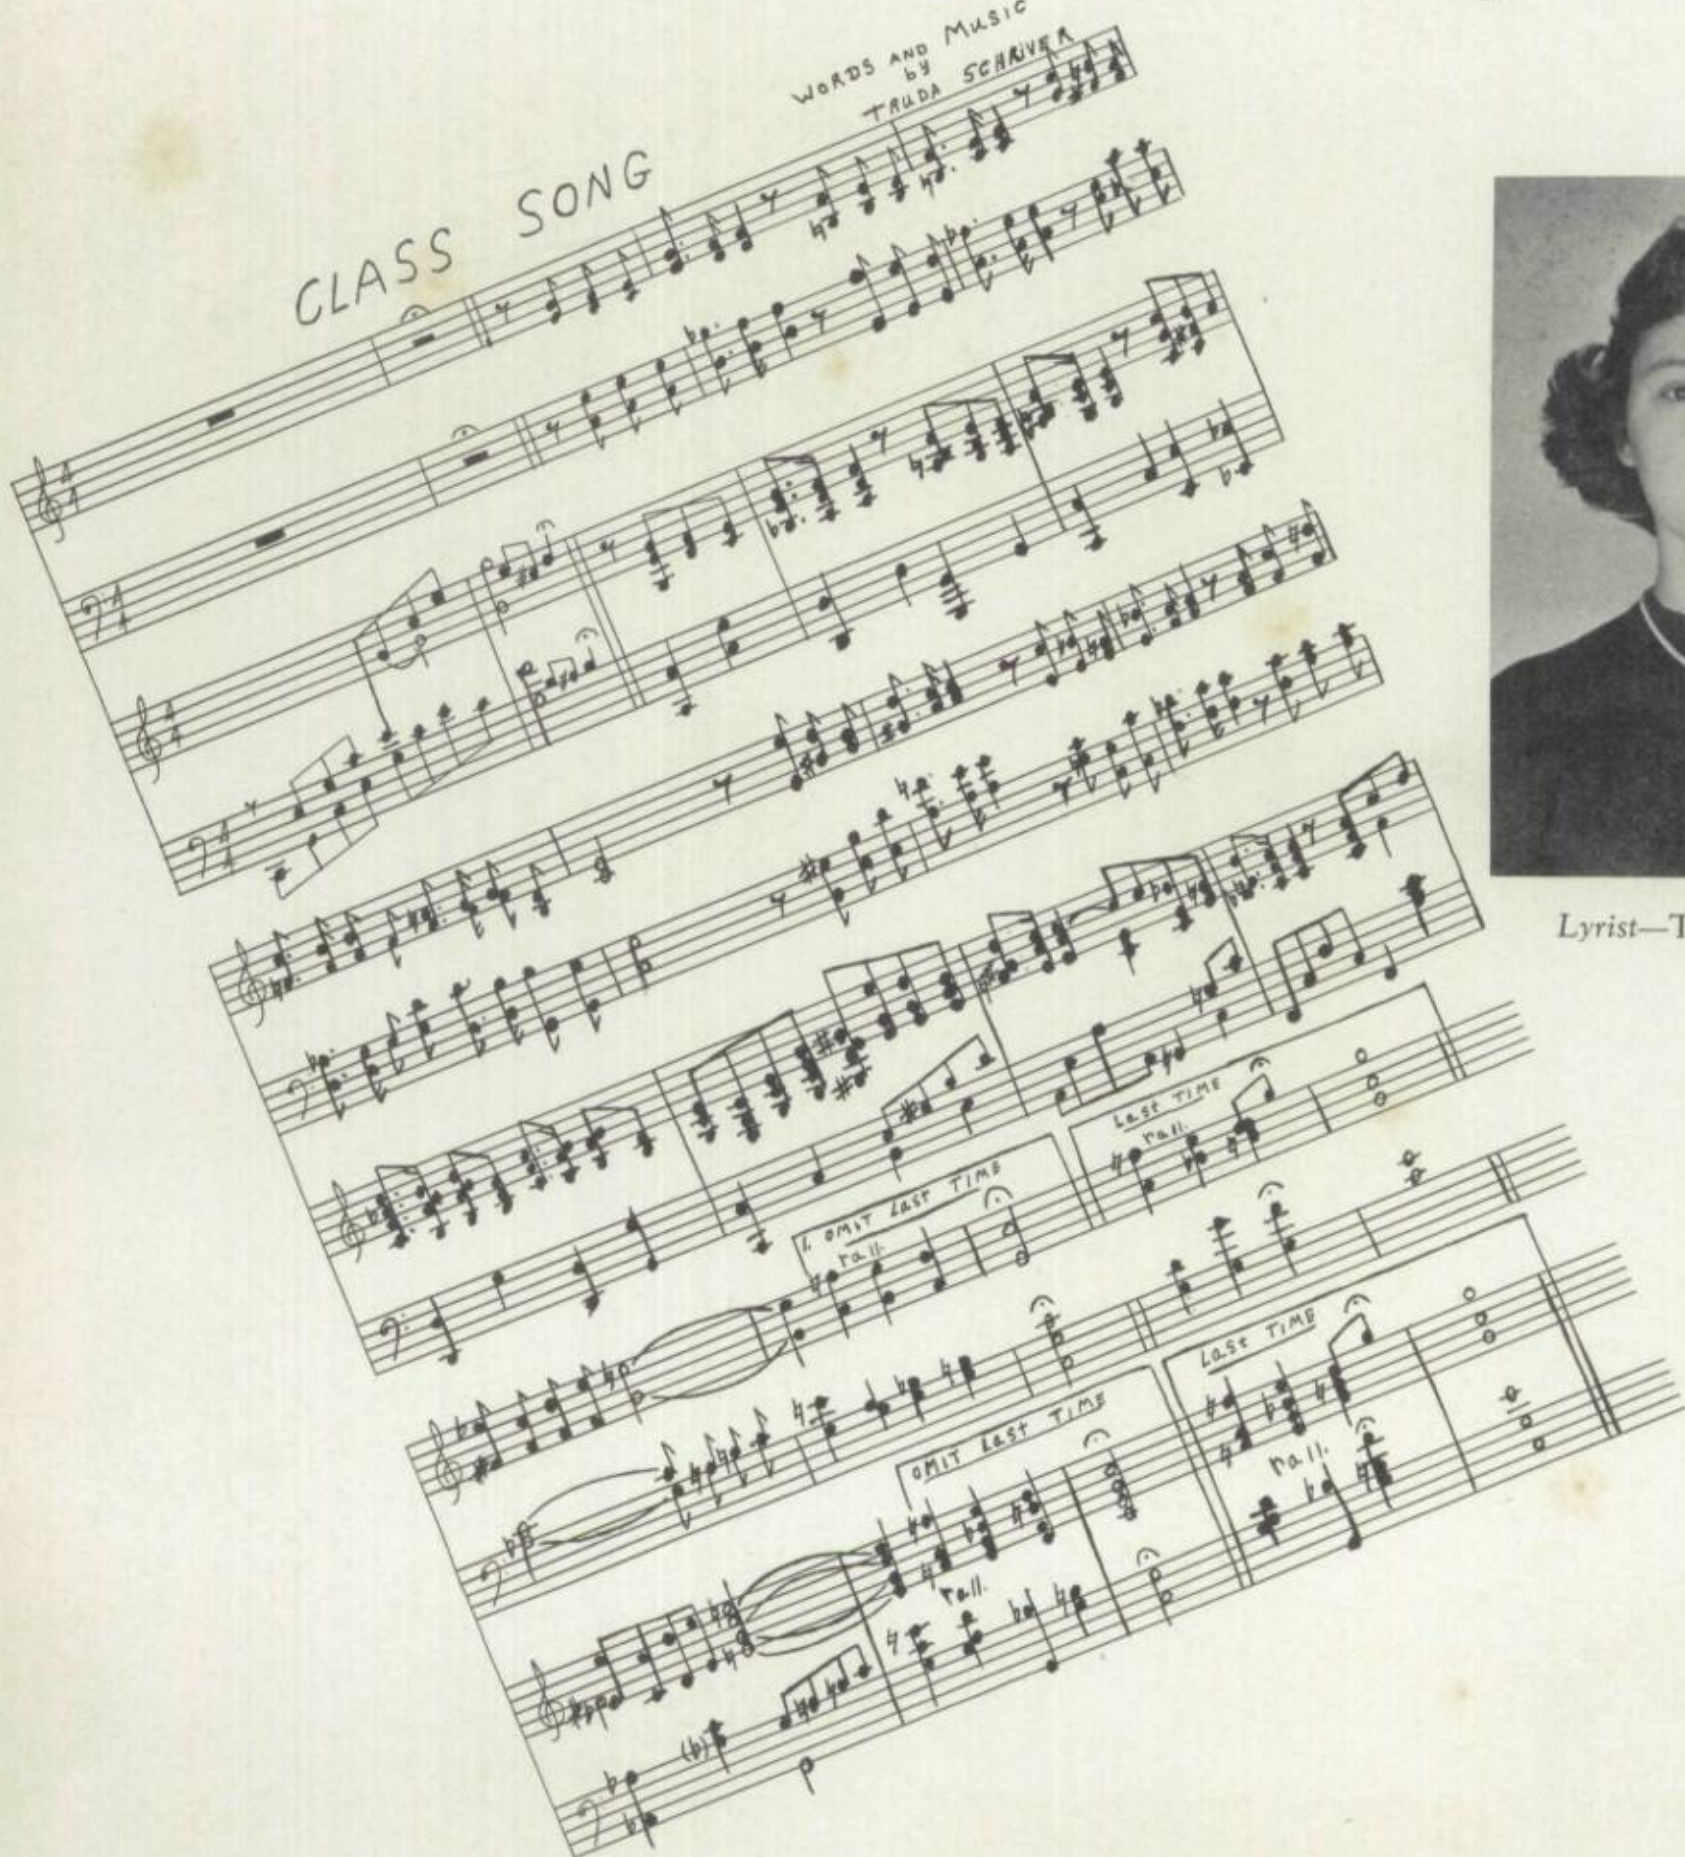 CLASS SONG
WORDS AND MUSIC
by
TRUDA SCHRIVER
4
4
4
4
4
4
4
4
1. OMIT Last TIME
rall.
Last TIME
rall.
OMIT Last TIME
rall.
Last TIME
rall.
Lyrist—T